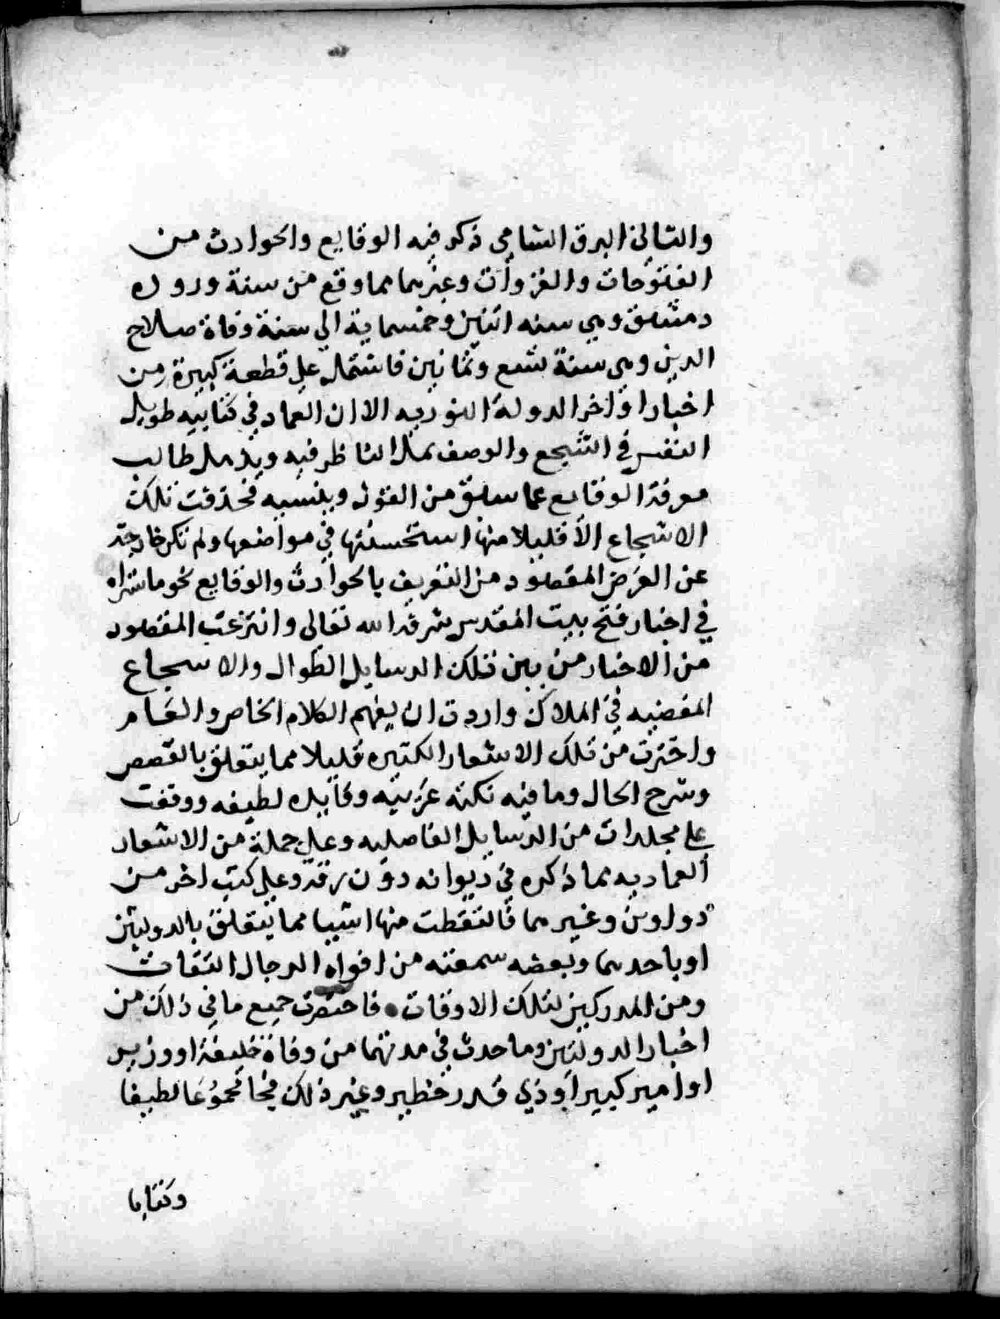 والثاني البرق الشامي ذكر فيه الوقايع والحوادث من
الفتوحات والغزوات وغيرهما مما وقع من سنة وروده
دمشق وهي سنه اثنين وخمسماية الي سنة وفاة صلاح
الدين وهي سنة تسع وثمانين فاشتمل علي قطعة كبيرة من
اخبار اواخر الدولة النوريه الا ان العماد في كتابيه طويل
النفس في التسجيع والوصف يمل الناظر فيه ويذهل طالب
معرفة الوقايع عما سبق من القول وينسيه فحذفت تلك
الاسجاع الا قليلا منها استحسنتها في مواضعها ولم تكن خارجة
عن الغرض المقصود من التعريف بالحوادث والوقايع نحو ما ستراه
في اخبار فتح بيت المقدس شرفه الله تعالي وانتزعت المقصود
من الاخبار من بين تلك الرسايل الطوال والاسجاع
المفضيه في الملال واردت ان يفهم الكلام الخاص والعام
واخترت من تلك الاشعار الكثيره قليلا مما يتعلق بالقصص
وشرح الحال وما فيه نكته غريبه وفايده لطيفه ووقفت
علي مجلدات من الرسايل الفاضليه وعلي جملة من الاشعار
العماديه مما ذكره في ديوانه دون برقه وعلي كتب اخر من
دواوين وغيرهما فالتقطت منها اشيا مما يتعلق بالدولتين
او باحدهما وبعضه سمعته من افواه الرجال الثقات
ومن المدركين لتلك الاوقات فاختصرت جميع ما في ذلك من
اخبار الدولتين وما حدث في مدتهما من وفاة خليفة او وزير
او امير كبير او ذي قدر خطير وغير ذلك فجا مجموعا لطيفا
وكتابا